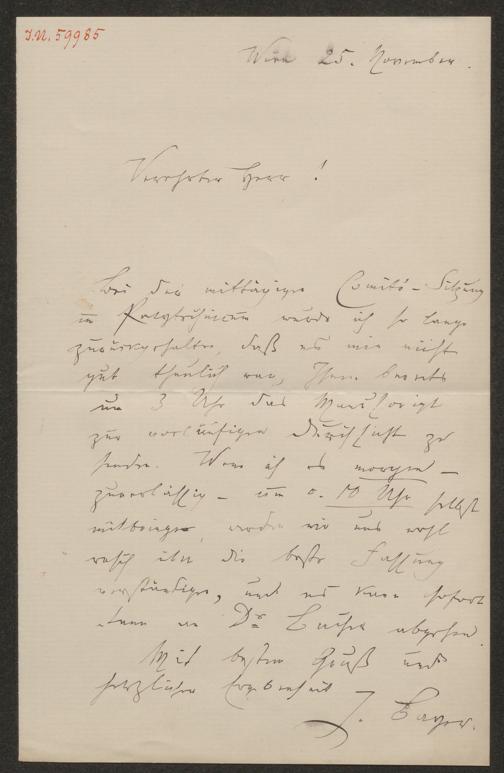 J.N. 59985
Wien 25. November.
Verehrter Herr!
Bei der mittägigen Comité-Sitzung
im Polytechnicum wurde ich so lange
zurückgehalten, daß es mir nicht
gut thunlich war, Ihnen bereits
um 3 Uhr das Manuscript
zur vorläufigen Durchsicht zu
senden. Wenn ich es morgen –
zuverlässig – um 10 Uhr selbst
mitbringe, werden wir uns wohl
rasch über die beste Fassung
verständigen, und es kann sofort
dann an Dr. abgehen.
Mit bestem Gruß und
herzlicher Ergebenheit
J. Bayer.